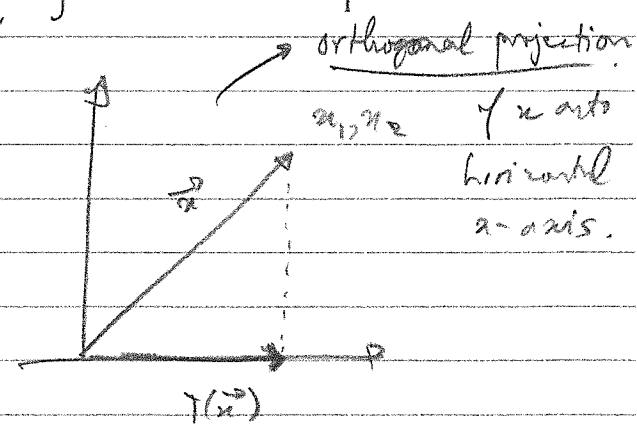 orthogonal projection
x₁, x₂ of x onto
horizontal
x-axis.
x⃗
T(x⃗)